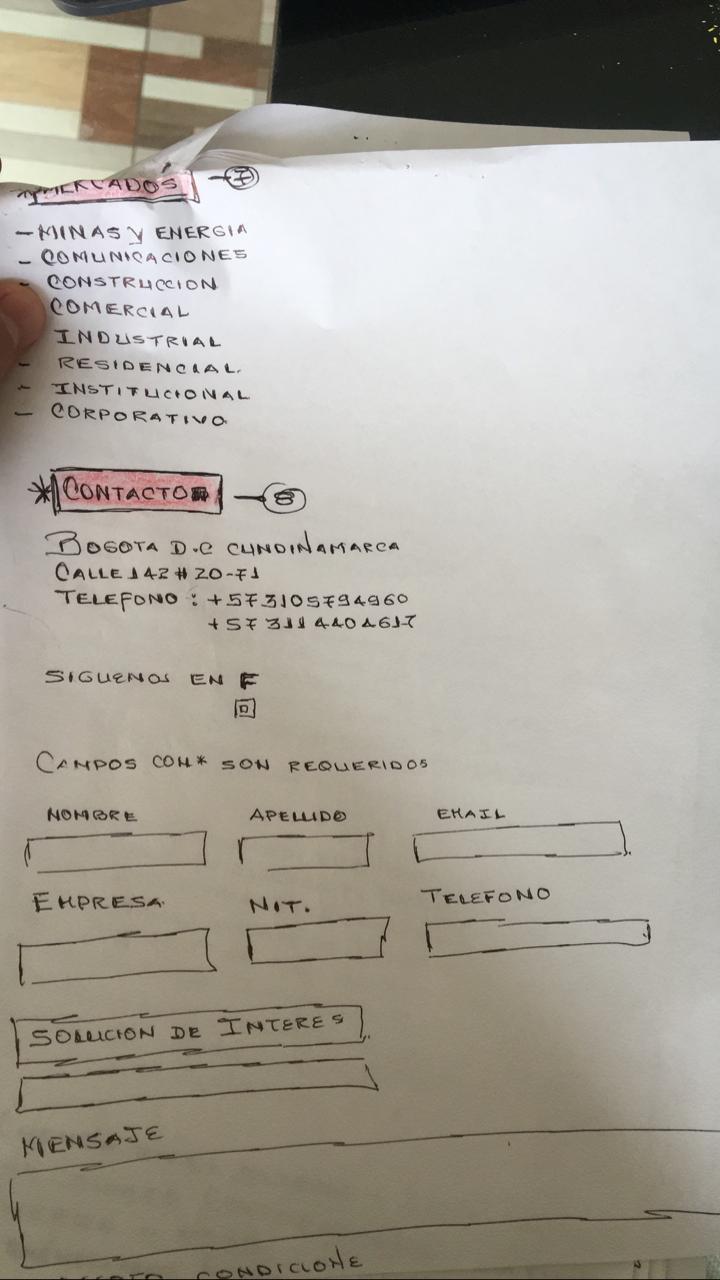 *MERCADOS - 7
- MINAS Y ENERGIA
- COMUNICACIONES
- CONSTRUCCION
COMERCIAL
INDUSTRIAL
- RESIDENCIAL.
- INSTITUCIONAL
- CORPORATIVO
* CONTACTO - 8
BOGOTA D.C CUNDINAMARCA
CALLE 142 # 20-71
TELEFONO : +573105794960
+57 311 4404617
SIGUENOS EN F
CAMPOS CON * SON REQUERIDOS
NOMBRE APELLIDO EMAIL
EMPRESA NIT. TELEFONO
SOLUCION DE INTERES
MENSAJE
CONDICIONE